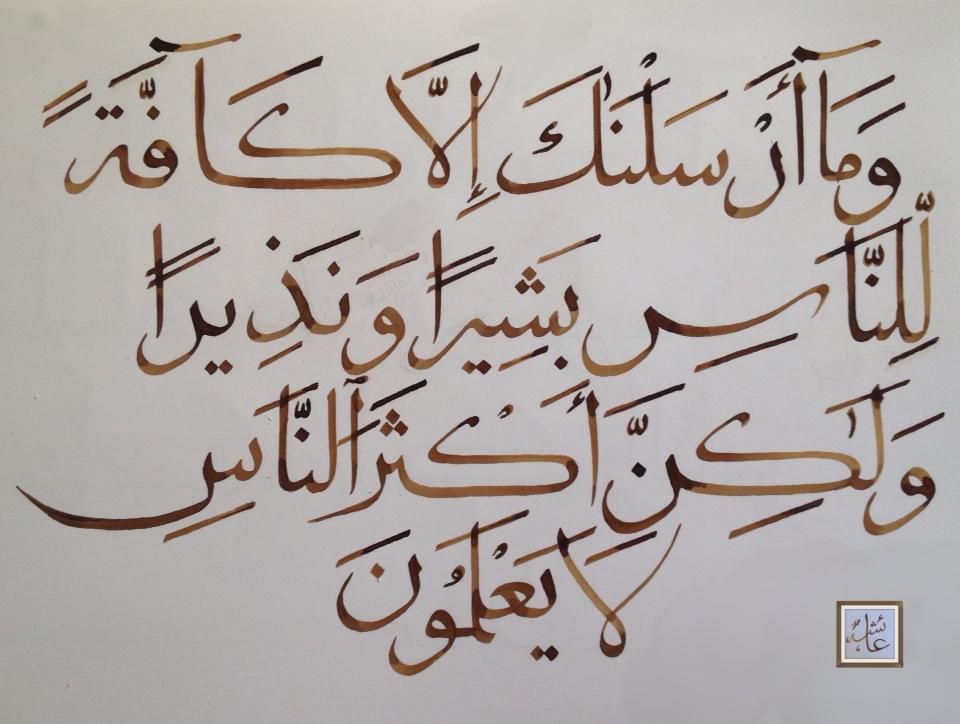 وَمَآ أَرْسَلْنَٰكَ إِلَّا كَآفَّةً
لِّلنَّاسِ بَشِيرًا وَنَذِيرًا
وَلَٰكِنَّ أَكْثَرَ ٱلنَّاسِ
لَا يَعْلَمُونَ
عائشة